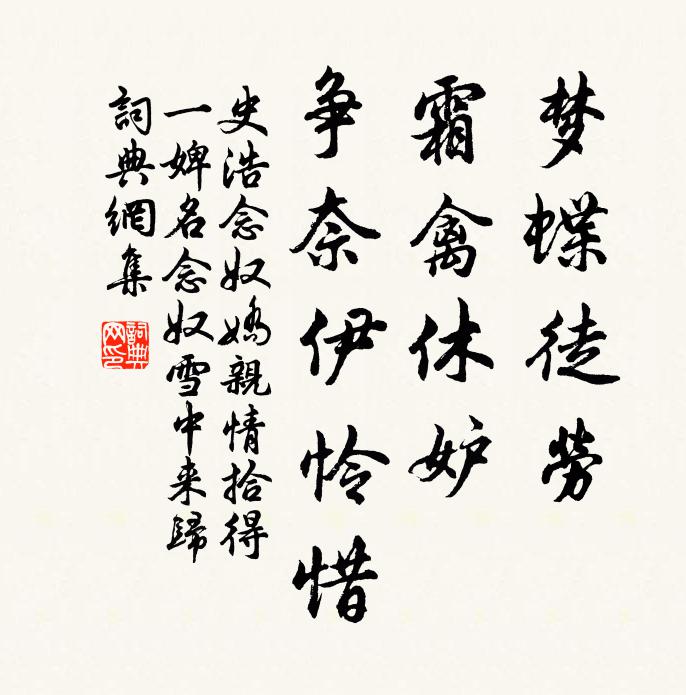 梦蝶徒劳
霜禽休妒
争奈伊怜惜
史浩念奴娇親情拾得
一婢名念奴雪中来歸
詞典網集
詞典
网印